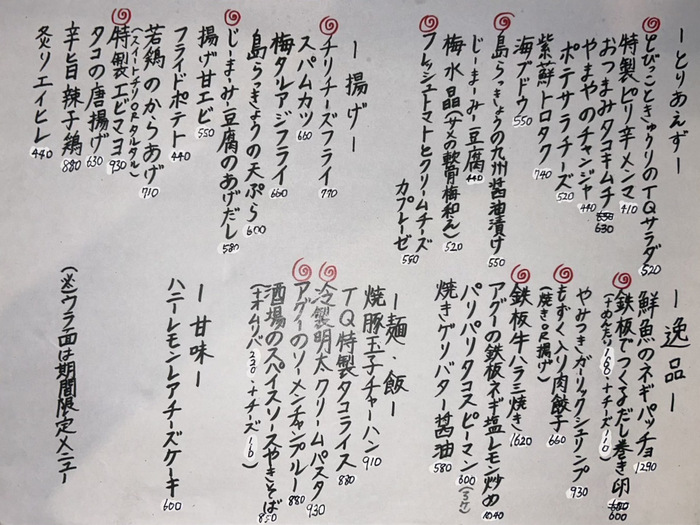 ーとりあえずー
とびっこときゅうりのTQサラダ 520
特製ピリ辛メンマ 410
おつまみタコキムチ 630
やまやのチャンジャ 440
ポテサラチーズ 520
紫蘇トロタク 740
海ブドウ 550
島らっきょうの九州醤油漬け 550
じーまーみー豆腐 440
梅水晶(サメの軟骨梅和え) 520
フレッシュトマトとクリームチーズ
カプレーゼ 580
ー揚げー
チリチーズフライ 770
スパムカツ 660
梅タルアジフライ 660
島らっきょうの天ぷら 600
じーまーみー豆腐のあげだし 580
揚げ甘エビ 550
フライドポテト 440
若鶏のからあげ 710
(スイートチリORタルタル)
特製エビマヨ 930
タコの唐揚げ 630
辛旨辣子鶏 880
炙りエイヒレ 440
ー逸品ー
鮮魚のネギパッチョ 1290
鉄板でつくるだし巻き卵 600
(+めんたい160・+チーズ110)
やみつきガーリックシュリンプ 930
もずく入り肉餃子 660
(焼きOR揚げ)
鉄板牛ハラミ焼き 1620
アグーの鉄板ネギ塩レモン炒め 1040
パリパリタコスピーマン 600
焼きゲソバター醤油 580
ー麺・飯ー
焼豚玉子チャーハン 910
TQ特製タコライス 880
冷製明太クリームパスタ 930
アグーのソーメンチャンプルー 880
酒場のスパイスソースやきそば 850
(+オムリバ220・+チーズ110)
ー甘味ー
ハニーレモンレアチーズケーキ 600
(※)ウラ面は期間限定メニュー